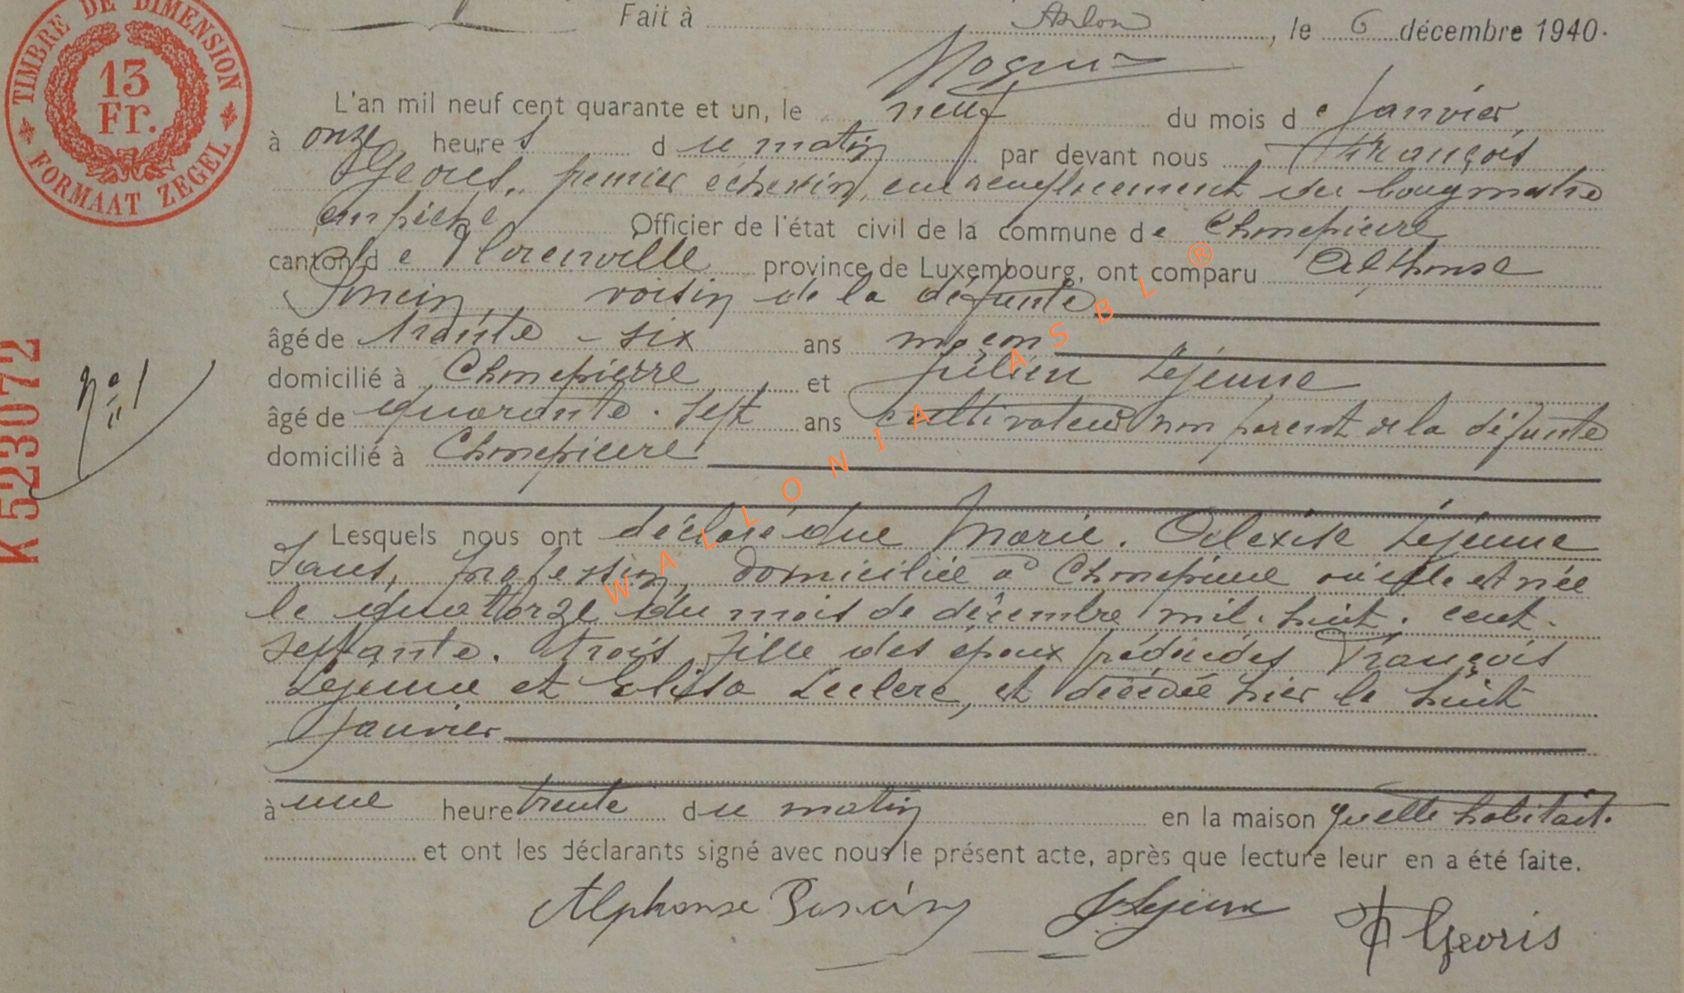 TIMBRE DE DIMENSION
13
Fr.
FORMAAT ZEGEL
K 523072
Fait à Arlon, le 6 décembre 1940.
L'an mil neuf cent quarante et un, le neuf du mois de Janvier
à onze heures du matin par devant nous François
Georis, premier échevin, en remplacement du bourgmestre
empêché Officier de l'état civil de la commune de Chassepierre
canton de Florenville province de Luxembourg, ont comparu Alphonse
voisin de la défunte
âgé de trente-six ans maçon
domicilié à Chassepierre et Julien Lejeune
N° 1
âgé de quarante-sept ans cultivateur non parent de la défunte
domicilié à Chassepierre
Lesquels nous ont déclaré que Marie-Alexise Lejeune
sans profession, domiciliée à Chassepierre où elle est née
le quatorze du mois de décembre mil-huit-cent-
septante-trois fille des époux prédécédés François
Lejeune et Elisa Leclerc, et décédée hier le huit
Janvier
à une heure trente du matin en la maison qu'elle habitait.
et ont les déclarants signé avec nous le présent acte, après que lecture leur en a été faite.
Alphonse J. Lejeune F Georis
WALLONIA ASBL ®